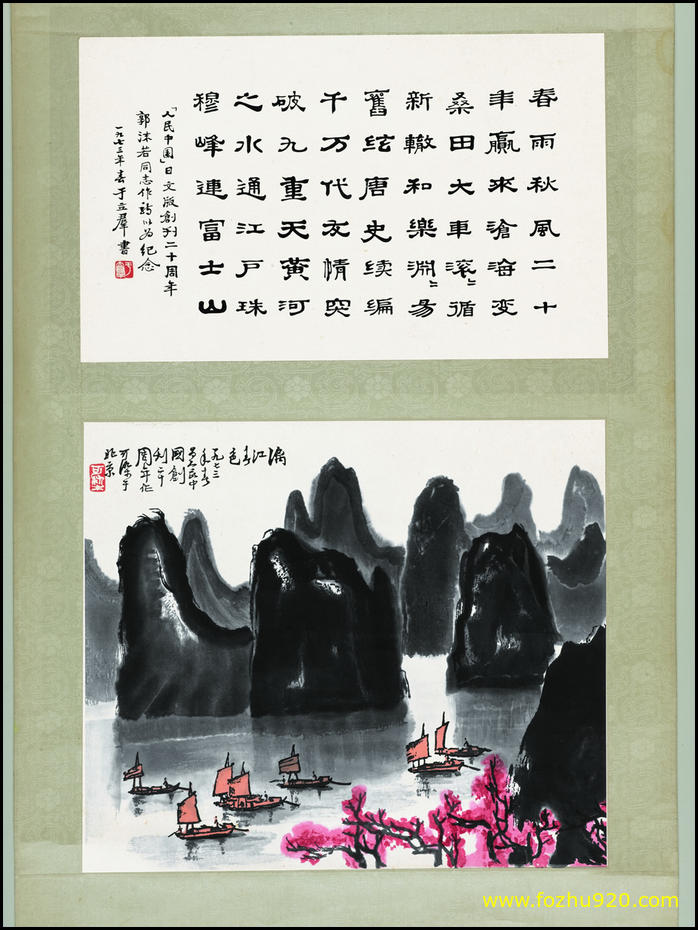 春雨秋風二十
年贏來滄海變
桑田大車滚〻循
新轍和樂淵〻易
舊絃唐史续编
千万代友情突
破九重天黄河
之水通江户珠
穆峰連富士山
「人民中國」日文版創刊二十周年
郭沫若同志作詩以為紀念
一九七三年春于立羣書
漓江春色
一九七三
年春
为人民中
國創
刊二十
周年作
可染于
北京
www.fozhu920.com